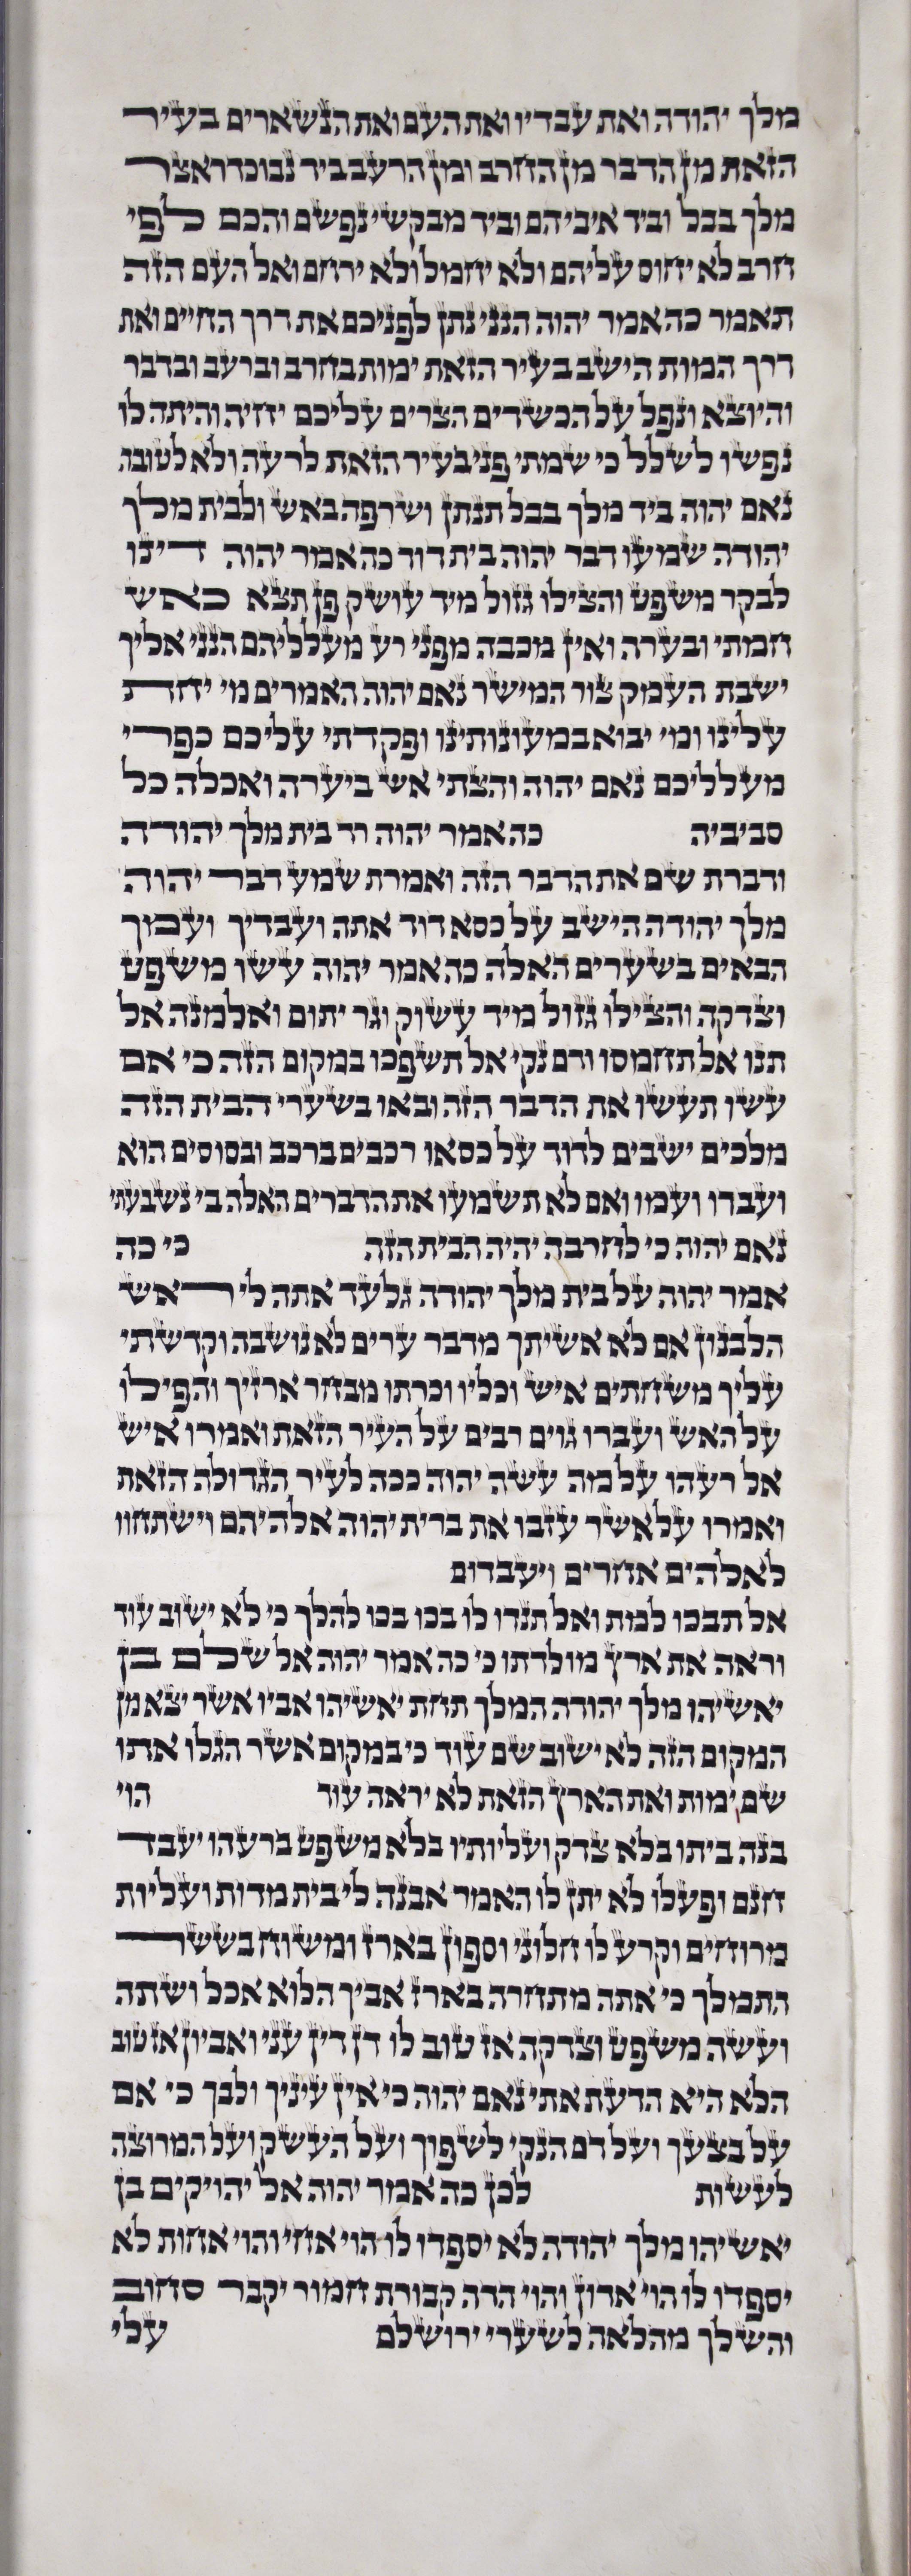 מלך יהודה ואת עבדיו ואת העם ואת הנשארים בעיר
הזאת מן הדבר מן החרב ומן הרעב ביד נבוכדראצר
מלך בבל וביד איביהם וביד מבקשי נפשם והכם לפי
חרב לא יחוס עליהם ולא יחמל ולא ירחם ואל העם הזה
תאמר כה אמר יהוה הנני נתן לפניכם את דרך החיים ואת
דרך המות הישב בעיר הזאת ימות בחרב וברעב ובדבר
והיוצא ונפל על הכשדים הצרים עליכם יחיה והיתה לו
נפשו לשלל כי שמתי פני בעיר הזאת לרעה ולא לטובה
נאם יהוה ביד מלך בבל תנתן ושרפה באש ולבית מלך
יהודה שמעו דבר יהוה בית דוד כה אמר יהוה דינו
לבקר משפט והצילו גזול מיד עושק פן תצא כאש
חמתי ובערה ואין מכבה מפני רע מעלליהם הנני אליך
ישבת העמק צור המישר נאם יהוה האמרים מי יחת
עלינו ומי יבוא במעונותינו ופקדתי עליכם כפרי
מעלליכם נאם יהוה והצתי אש ביערה ואכלה כל
סביביה כה אמר יהוה רד בית מלך יהודה
ודברת שם את הדבר הזה ואמרת שמע דבר יהוה
מלך יהודה הישב על כסא דוד אתה ועבדיך ועמך
הבאים בשערים האלה כה אמר יהוה עשו משפט
וצדקה והצילו גזול מיד עשוק וגר יתום ואלמנה אל
תנו אל תחמסו ודם נקי אל תשפכו במקום הזה כי אם
עשו תעשו את הדבר הזה ובאו בשערי הבית הזה
מלכים ישבים לדוד על כסאו רכבים ברכב ובסוסים הוא
ועבדו ועמו ואם לא תשמעו את הדברים האלה בי נשבעתי
נאם יהוה כי לחרבה יהיה הבית הזה כי כה
אמר יהוה על בית מלך יהודה גלעד אתה לי ראש
הלבנון אם לא אשיתך מדבר ערים לא נושבה וקדשתי
עליך משחתים איש וכליו וכרתו מבחר ארזיך והפילו
על האש ועברו גוים רבים על העיר הזאת ואמרו איש
אל רעהו על מה עשה יהוה ככה לעיר הגדולה הזאת
ואמרו על אשר עזבו את ברית יהוה אלהיהם וישתחוו
לאלהים אחרים ויעבדום
אל תבכו למת ואל תנדו לו בכו בכו להלך כי לא ישוב עוד
וראה את ארץ מולדתו כי כה אמר יהוה אל שלם בן
יאשיהו מלך יהודה המלך תחת יאשיהו אביו אשר יצא מן
המקום הזה לא ישוב שם עוד כי במקום אשר הגלו אתו
שם ימות ואת הארץ הזאת לא יראה עוד הוי
בנה ביתו בלא צדק ועליותיו בלא משפט ברעהו יעבד
חנם ופעלו לא יתן לו האמר אבנה לי בית מדות ועליות
מרוחים וקרע לו חלוני וספון בארז ומשוח בששר
התמלך כי אתה מתחרה בארז אביך הלוא אכל ושתה
ועשה משפט וצדקה אז טוב לו דן דין עני ואביון אז טוב
הלא היא הדעת אתי נאם יהוה כי אין עיניך ולבך כי אם
על בצעך ועל דם הנקי לשפוך ועל העשק ועל המרוצה
לעשות לכן כה אמר יהוה אל יהויקים בן
יאשיהו מלך יהודה לא יספדו לו הוי אחי והוי אחות לא
יספדו לו הוי אדון והוי הדה קבורת חמור יקבר סחוב
והשלך מהלאה לשערי ירושלם עלי